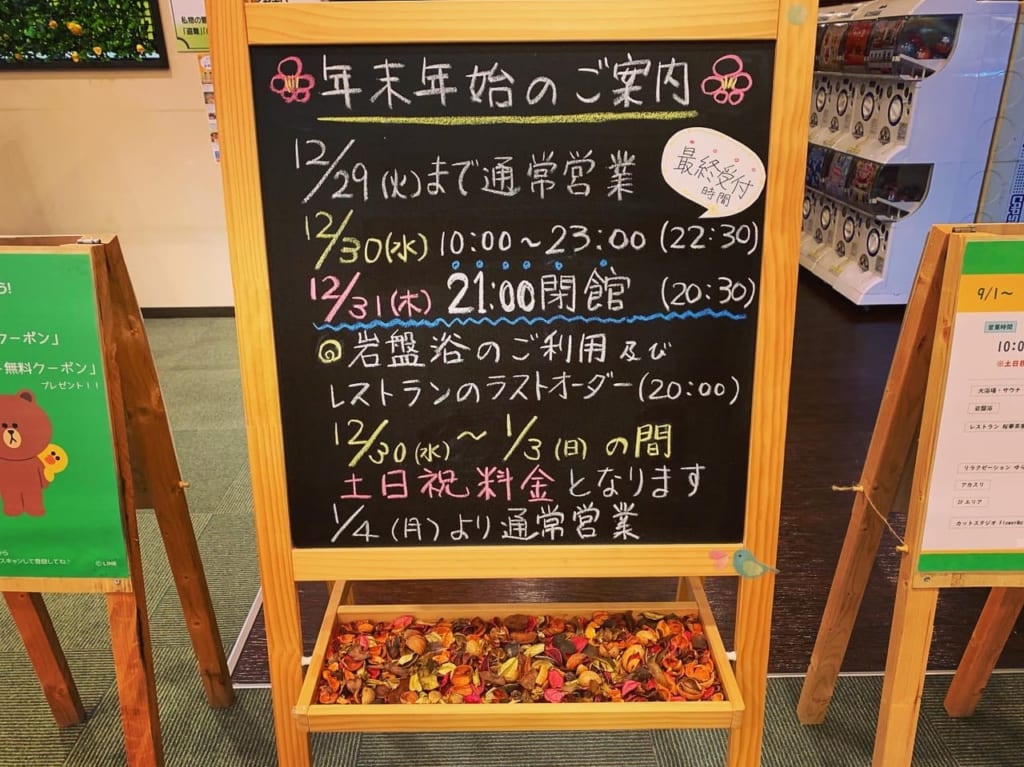 年末年始のご案内
12/29(火)まで通常営業
最終受付
時間
12/30(水) 10:00～23:00 (22:30)
12/31(木) 21:00閉館 (20:30)
◎岩盤浴のご利用及び
レストランのラストオーダー(20:00)
12/30(水)～1/3(日)の間
土日祝料金となります
1/4(月)より通常営業
う!
クーポン」
無料クーポン」
プレゼント!!
スキャンして登録してね!
©LINE
9/1～
営業時間
10:0
※土日祝
大浴場・サウナ
岩盤浴
レストラン
リラクゼーション ゆら
アカスリ
2Fエリア
カットスタジオ